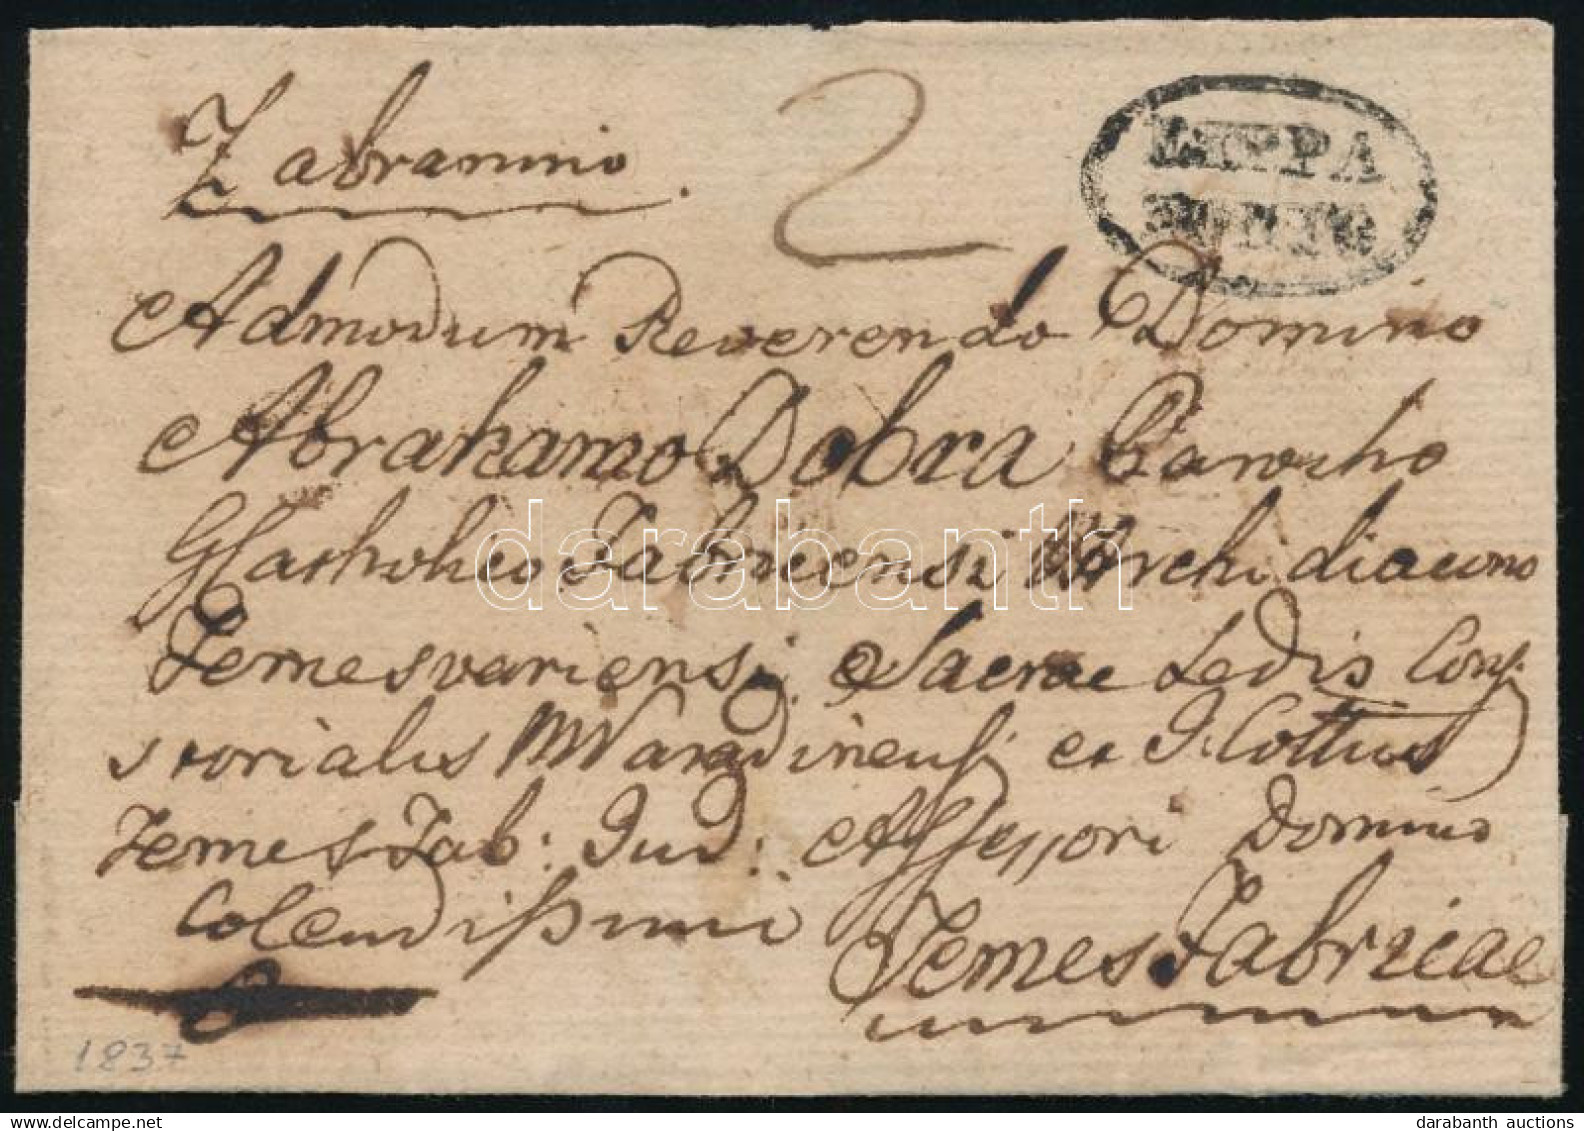 Zabranino.
2
LIPPA
Admodum Reverendo Domino
Abrahamo Dobra Parocho
G Catholico Fabricensi V Archidiacono
Temesvariensi, Sacrae Sedis Consi
storialis MVaradinensi et I. Cottus
Temes Fab: Jud: Assessori Domino
Colendissimi
Temes Fabricae
1837
darabanth
darabanth auctions